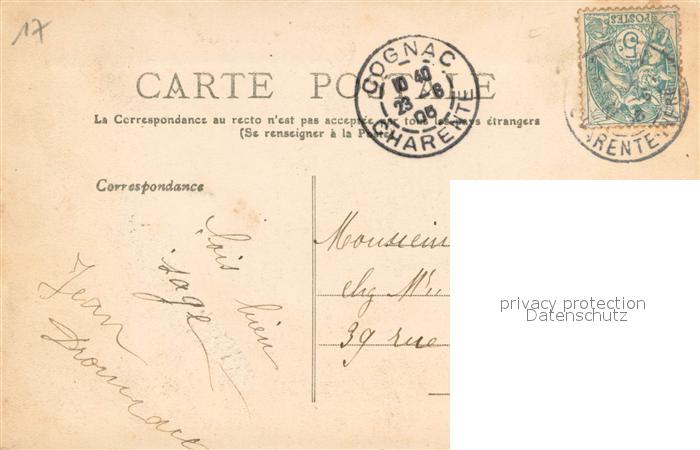 17
CARTE POSTALE
La Correspondance au recto n'est pas acceptée par tous les pays étrangers
(Se renseigner à la Poste)
COGNAC
10 40
23 -6
05
CHARENTE
POSTES
5
CHARENTE-INFRE
Correspondance
sois bien
sage
Jean
Monsieur
chz Mr
39 rue
privacy protection
Datenschutz